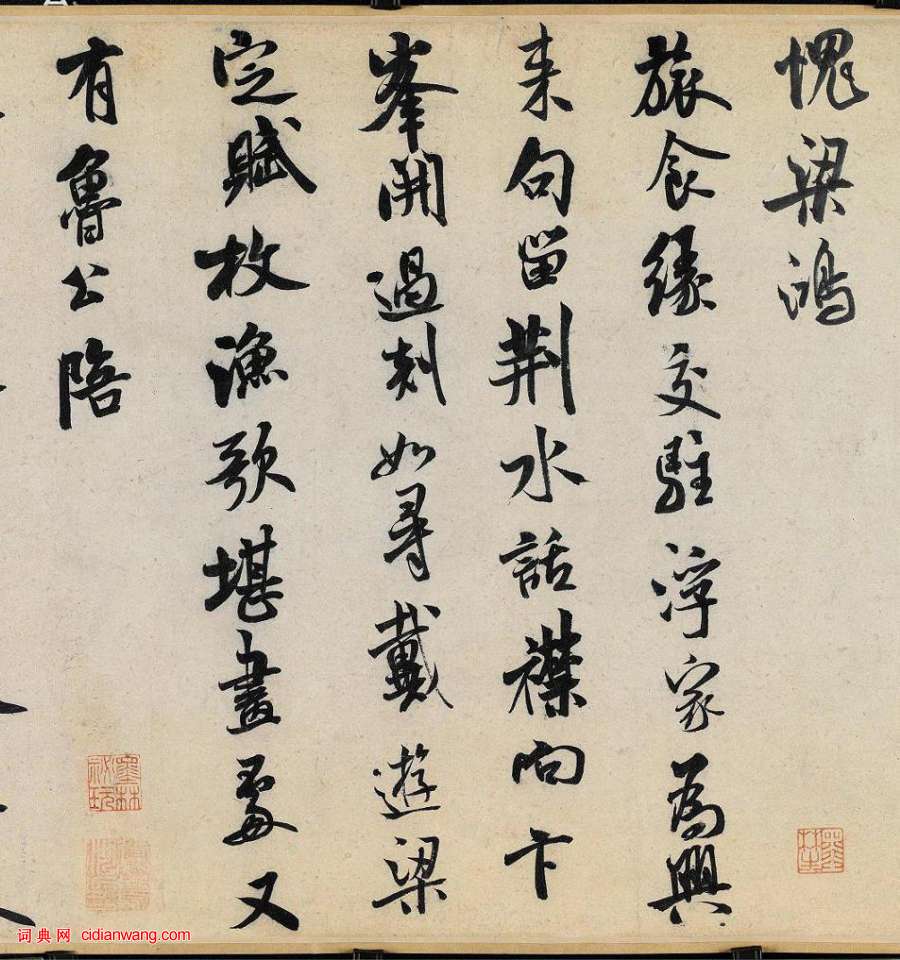 愧梁鴻
旅食緣交駐浮家為興
来句留荆水話襟向卞
峯開過剡如尋戴遊梁
定賦枚漁歌堪畫處又
有魯公陪
墨林祕玩
词典网 cidianwang.com